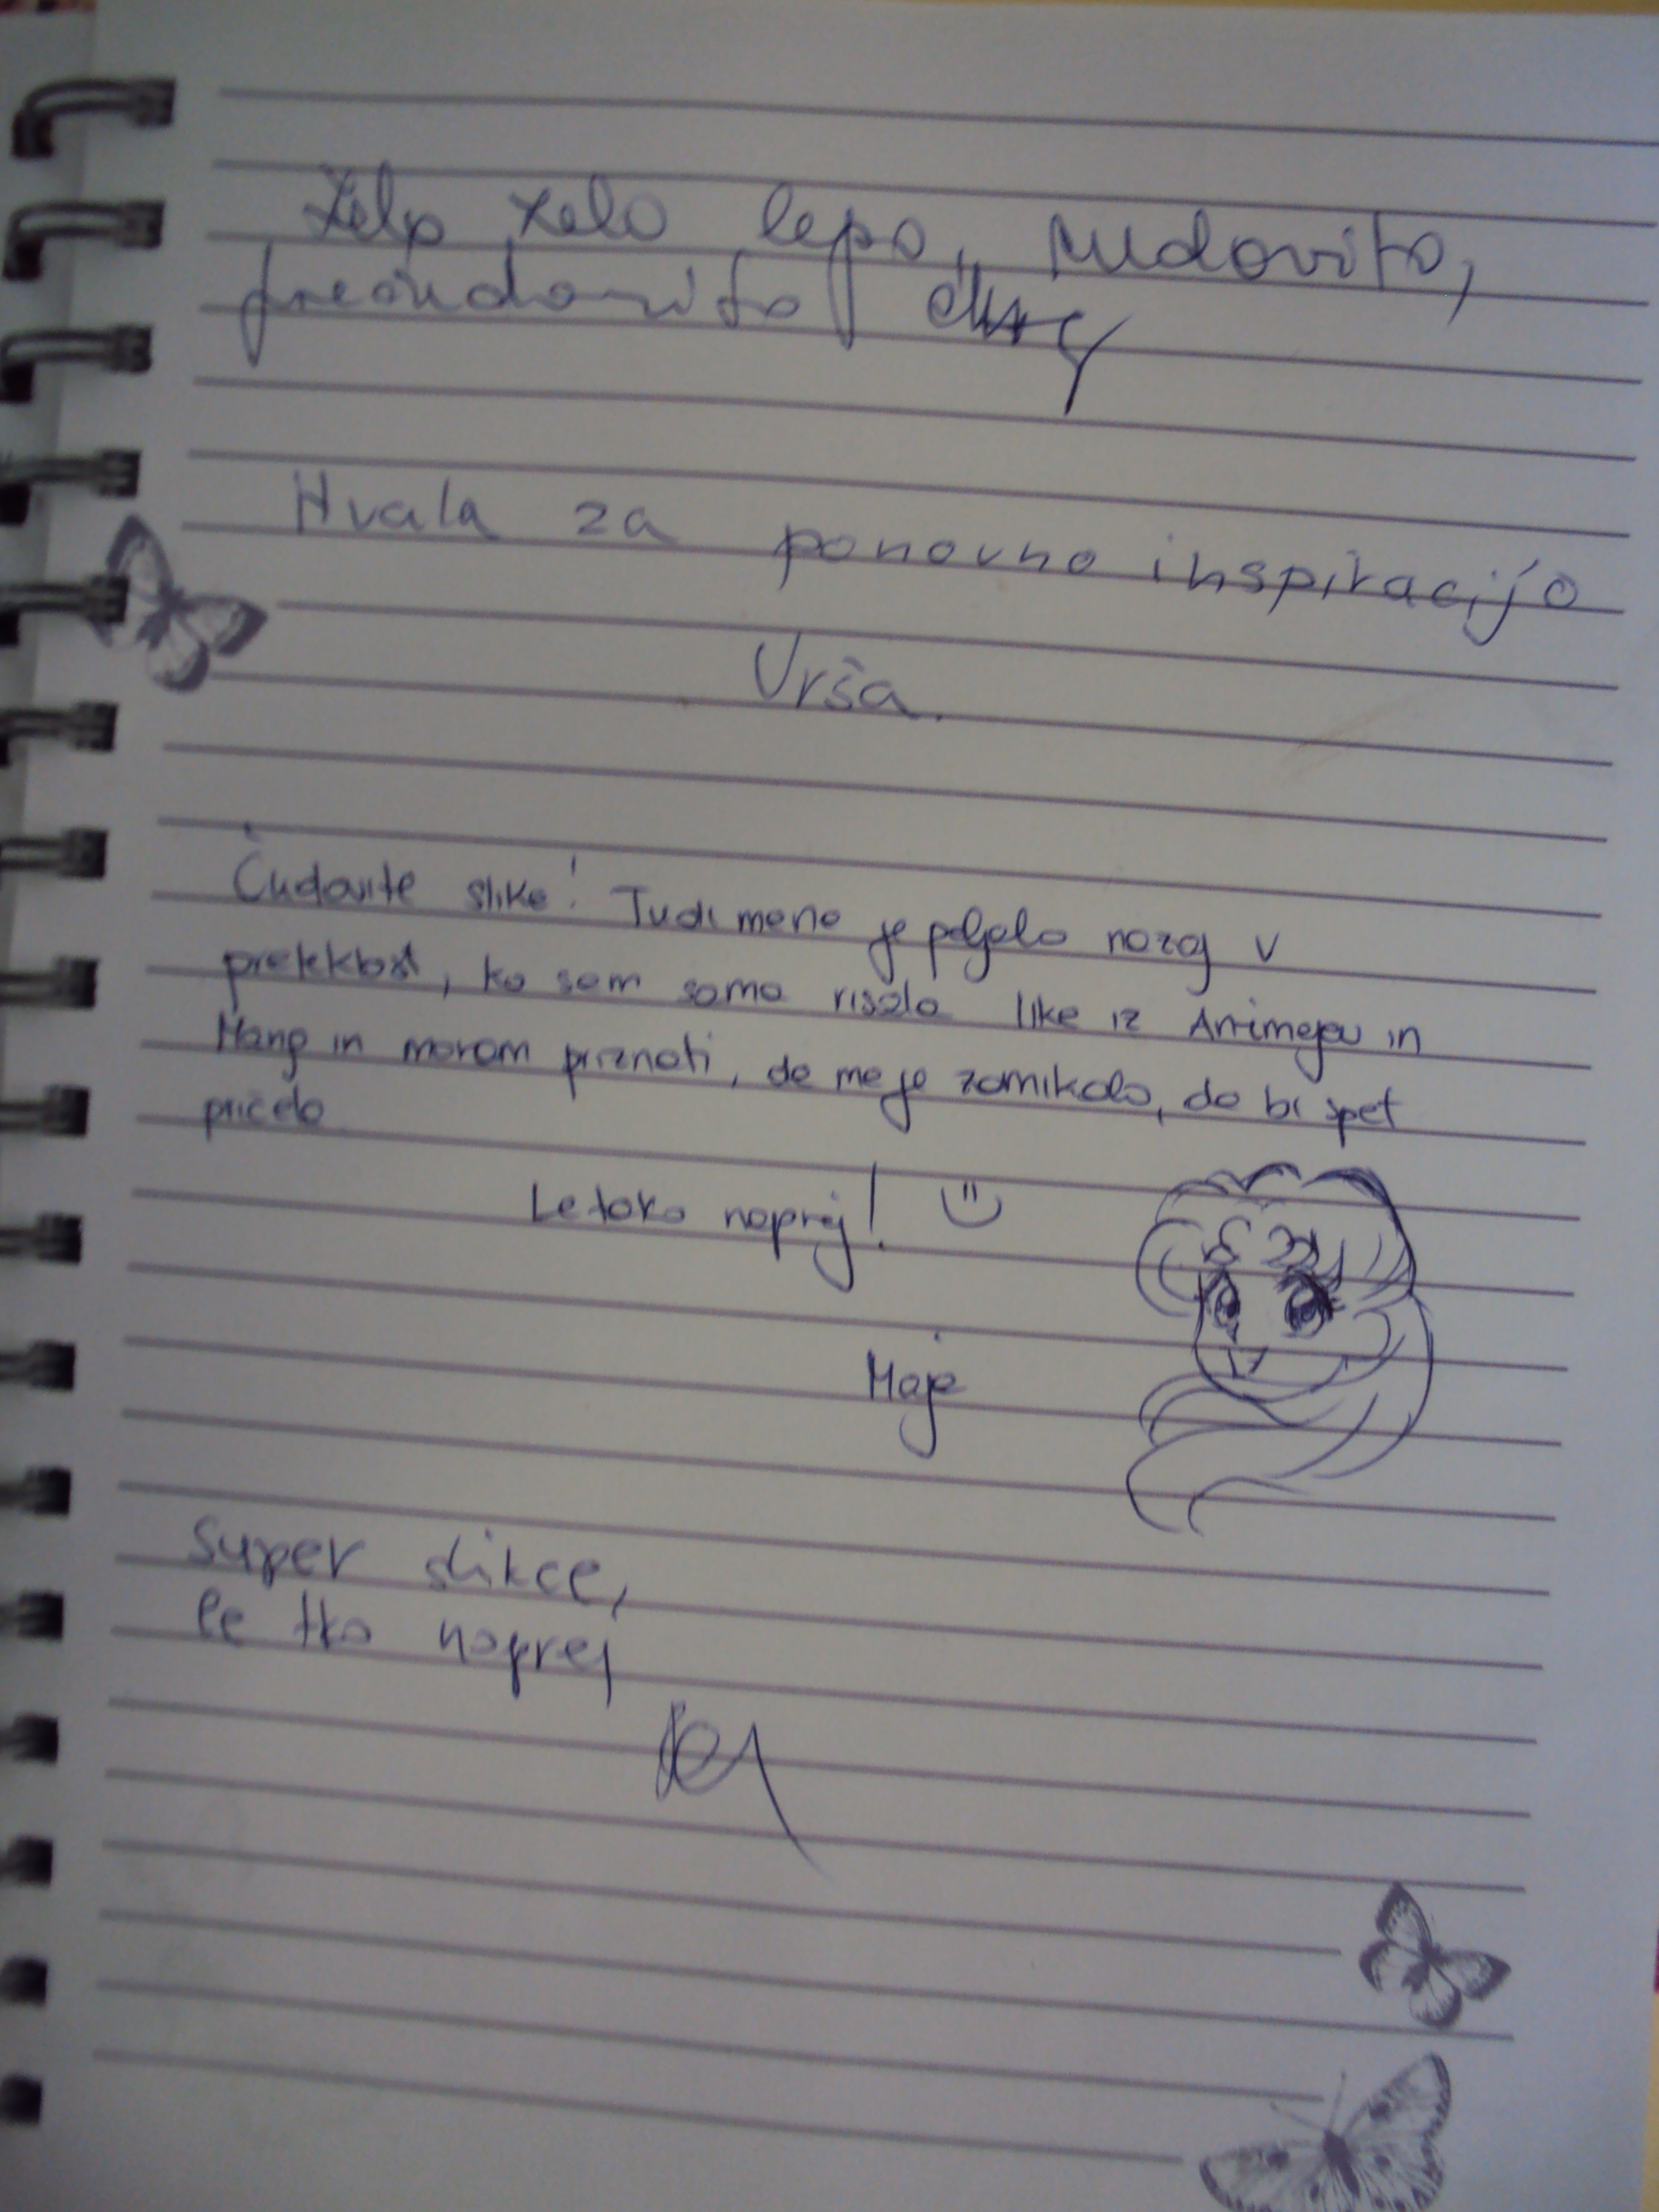 Zelo zelo lepo, čudovito,
prečudovito
Hvala za ponovno inspiracijo
Urša.
Čudovite slike! Tudi mene je peljalo nazaj v
preteklost, ko sem sama risala like iz Animejev in
Mang in moram priznati, da me je zamikalo, da bi spet
pričela
Le tako naprej! :)
Maja
Super slikce,
le tko naprej